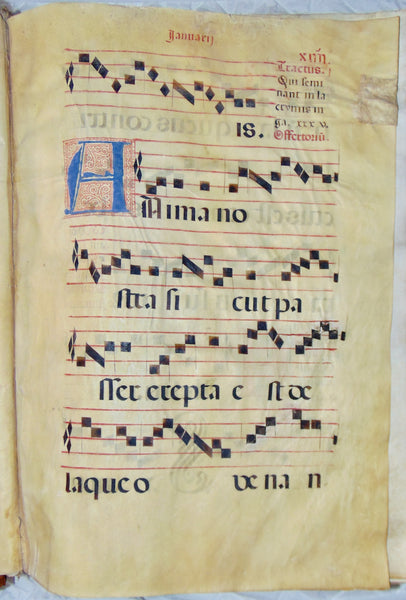 Januarij
xiiij
Tractus.
Qui semi
nant in la
crymis in
ga. xxxv.
Offertoriũ.
is.
Anima no
stra si cut pa
sser erepta e st de
laque o ve na n